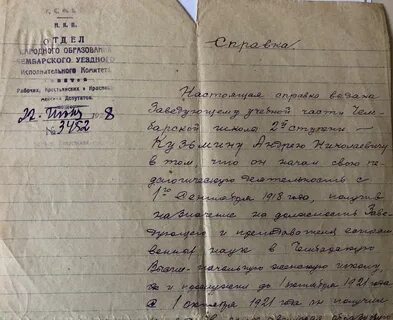 Н.К.П.
ОТДЕЛ
НАРОДНОГО ОБРАЗОВАНИЯ
ЧЕМБАРСКОГО УЕЗДНОГО
Исполнительного Комитета
Рабочих, Крестьянских и Красно-
Депутатов.
№ 3452
Справка.
Настоящая справка выдана
Заведующему учебной части Чем-
барской школы 2й ступени —
Кузьмину Андрею Николаевичу
в том, что он начал свою пе-
дагогическую деятельность с
1го Сентября 1918 года, получив
назначение на должность Заве-
дующего и преподавателя
наук в Чембарскую
школу,
до 1 октября 1921 года
С 1 октября 1921 года он получил